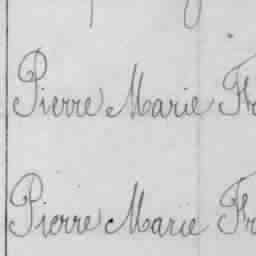 Pierre Marie Fr
Pierre Marie Fr